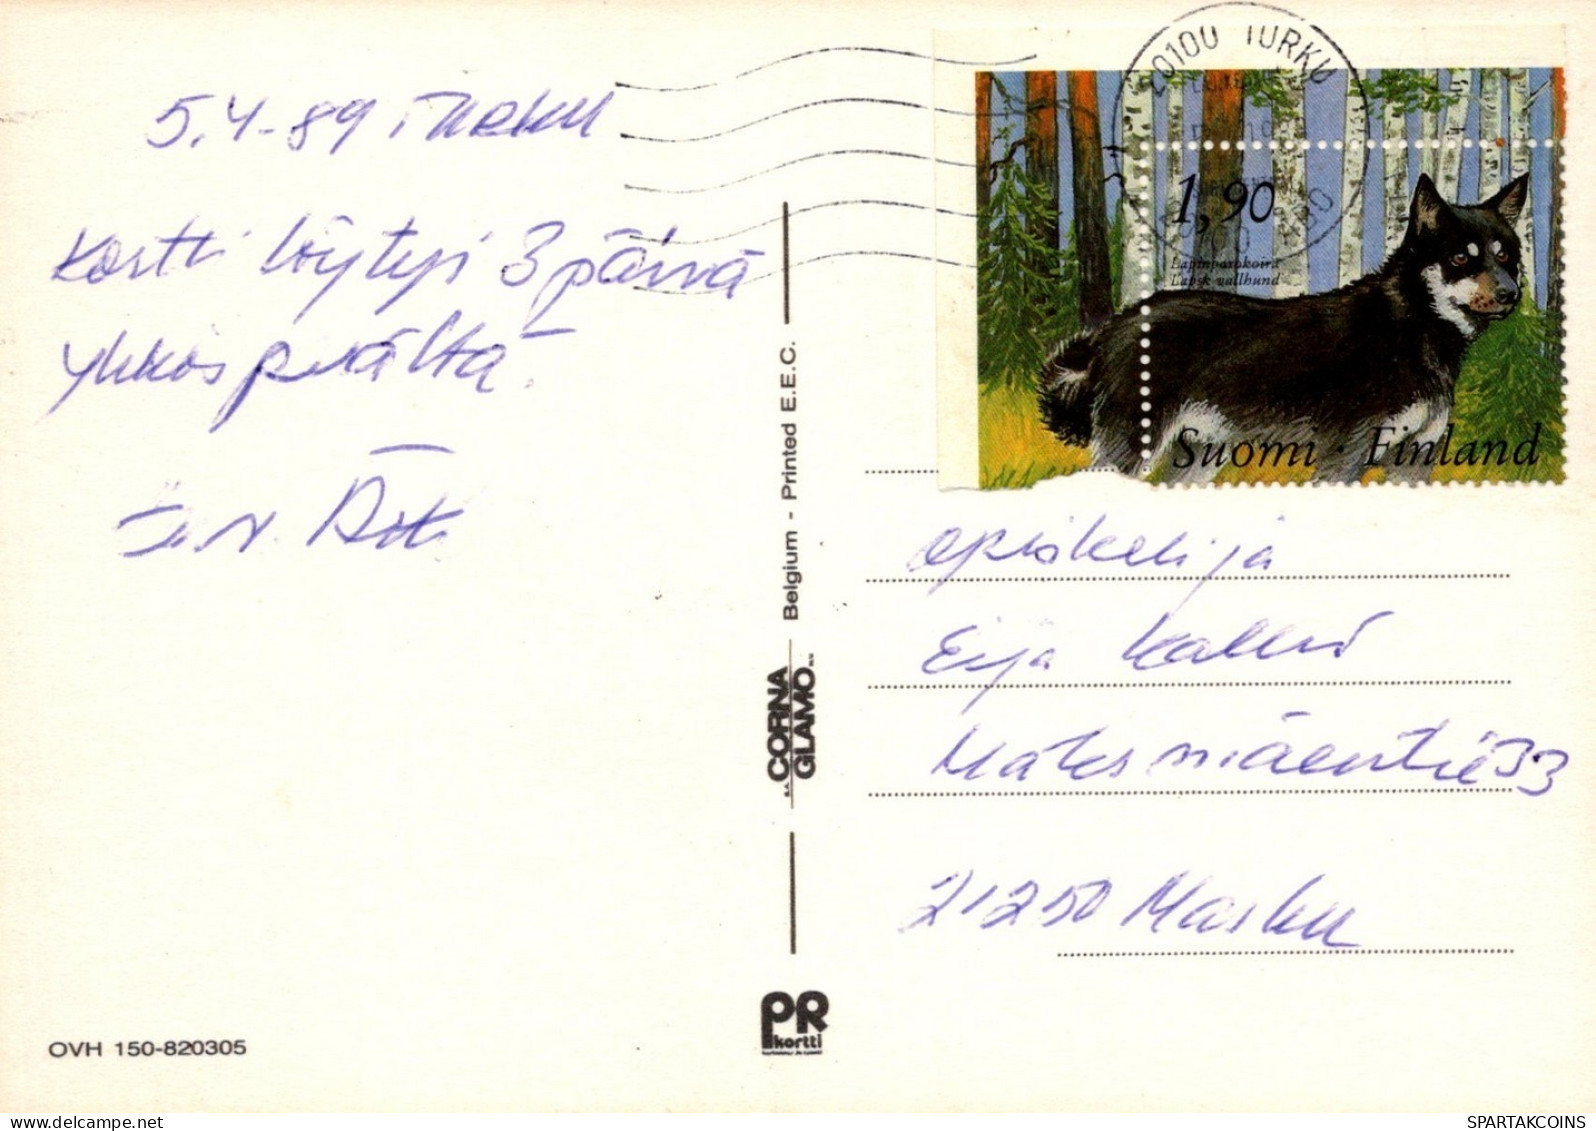 5.4-89 Turku
Kortti löytyi 3 päivä
yhkös päältä.
20100 TURKU
1,90
Lapinporokoira
Lapsk vallhund
Suomi · Finland
opiskelija
Eija
Maksmäentie 33
21250 Masku
Belgium - Printed E.E.C.
S.A. CORNA
GLAMO N.V.
PR
kortti
OVH 150-820305
SPARTAKCOINS